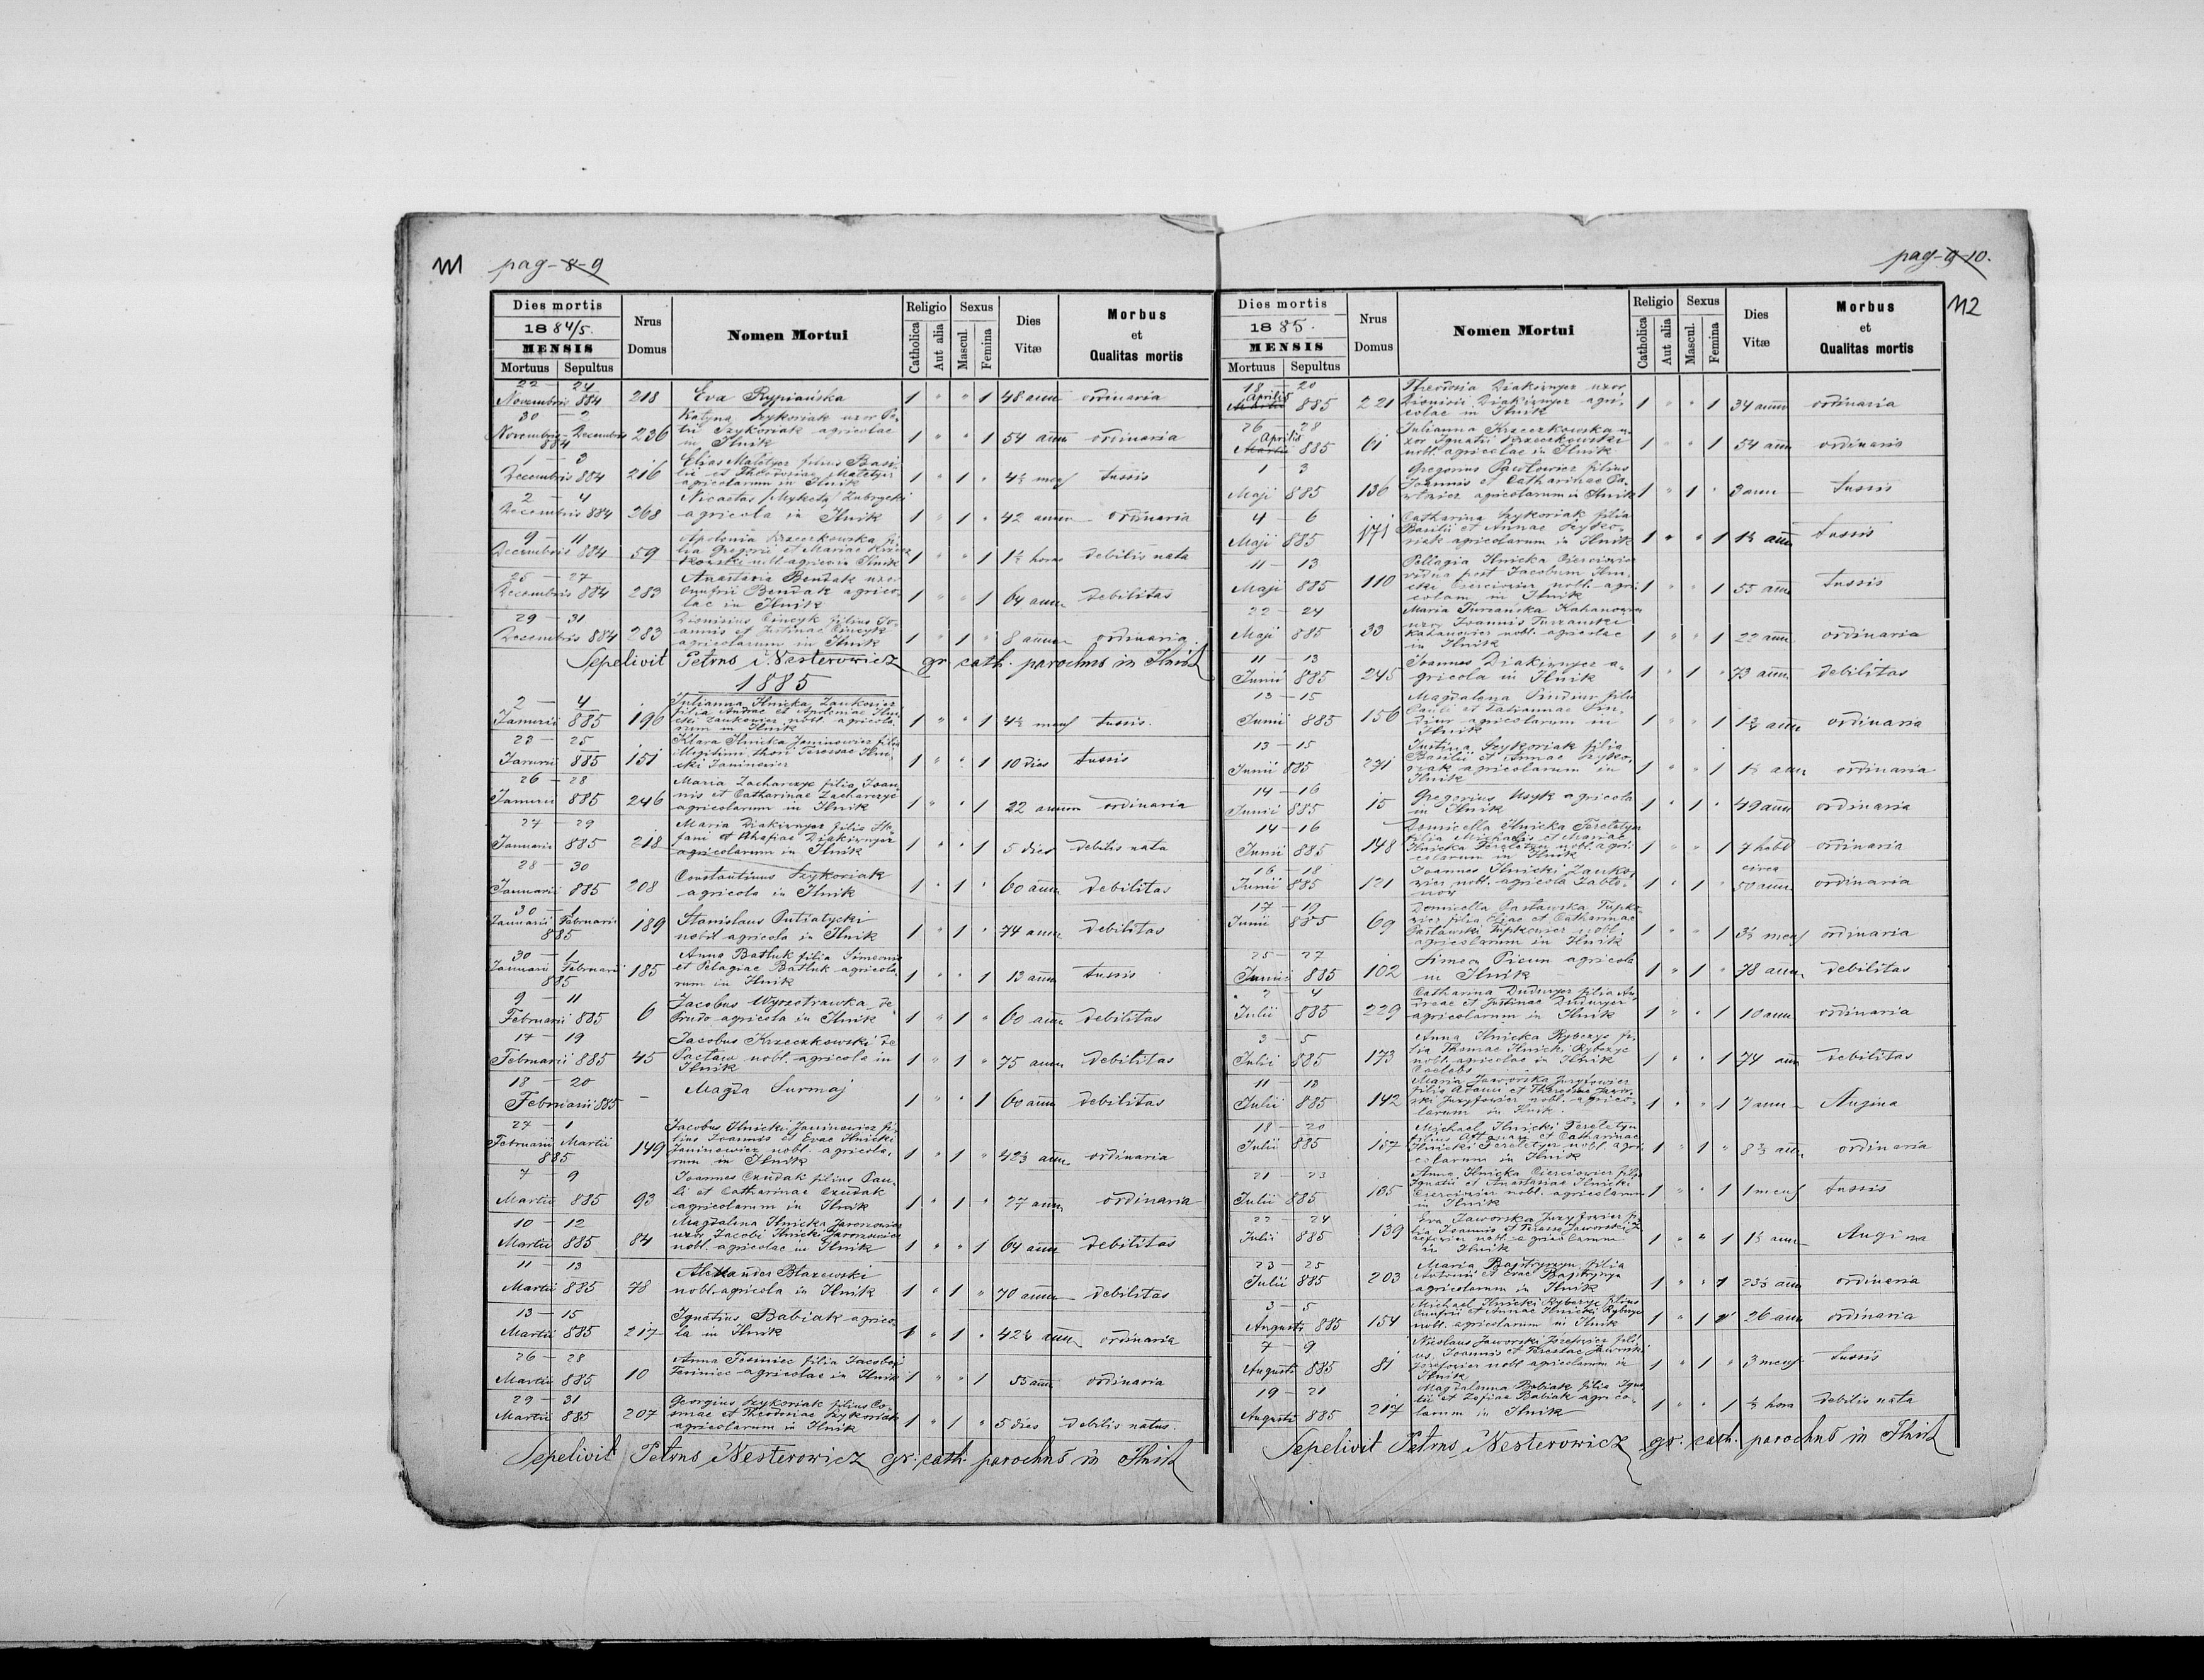 111 pag-8-9
Dies mortis
1884/5.
MENSIS
Mortuus Sepultus
Nrus Domus
Nomen Mortui
Religio
Catholica Aut alia
Sexus
Mascul. Femina
Dies Vitæ
Morbus et Qualitas mortis
22 — 24
Novembris 884 218 Eva Rypiańska 1 " " 1 48 ann ordinaria
30 — 2
Novembris - Decembris 884 236 Katyna Szykoriak uxor Pe-
tri Szykoriak agricolae
in Ilnik 1 " " 1 54 ann ordinaria
1 — 3
Decembris 884 216 Elias Maletycz filius Basi-
lii et Theodosiae Maletycz
agricolarum in Ilnik 1 " 1 " 4½ mens tussis
2 — 4
Decembris 884 268 Nicaetas /Mykita/ Zubrycki
agricola in Ilnik 1 " 1 " 42 annor ordinaria
9 — 11
Decembris 884 59 Apolonia Krzeczkowska fi-
lia Gregorii et Mariae
nobl. agricol in Ilnik 1 " " 1 1½ horae debilis nata
25 — 27
Decembris 884 283 Anastasia Bendak uxor
Onufrii Bendak agrico-
lae in Ilnik 1 " " 1 64 ann debilitas
29 — 31
Decembris 884 283 Dionisius Cincyk filius Jo-
annis et Justinae Cincyk
agricolarum in Ilnik 1 " 1 " 8 annor ordinaria.
Sepelivit Petrus Nesterowicz gr. cath. parochus in Ilnik
1885
2 — 4
Januarii 885 196 Julianna Ilnicka Zaukowicz
filia Andreae et Apoloniae Ilni-
cki Zaukowicz nobl. agricola-
rum in Ilnik 1 " " 1 4½ mens tussis.
23 — 25
Januarii 885 151 Klara Ilnicka Janinowicz filia
illegitimi thori Teressae Ilni-
cki Janinowicz 1 " " 1 10 dies tussis
26 — 28
Januarii 885 246 Maria Zacharczyc filia Joan-
nis et Catharinae Zacharczyc
agricolarum in Ilnik 1 " " 1 22 annorum ordinaria
27 — 29
Januarii 885 218 Maria Diakiwnycz filia Ste-
fani et Ahafiae Diakiwnycz
agricolarum in Ilnik 1 " " 1 5 dies debilis nata
28 — 30
Januarii 885 208 Constantinus Szykoriak
agricola in Ilnik 1 " 1 " 60 ann debilitas
30 — 1
Januarii Februarii 885 189 Stanislaus Putiatycki
nobil agricola in Ilnik 1 " 1 " 74 ann debilitas
30 — 1
Januarii Februarii 885 185 Anna Batluk filia Simeonis
et Pelagiae Batluk agricola-
rum in Ilnik 1 " " 1 13 ann tussis
9 — 11
Februarii 885 6 Jacobus Wyszotrawka de
Prudo agricola in Ilnik 1 " 1 " 60 ann debilitas
17 — 19
Februarii 885 45 Jacobus Krzeczkowski de
Pactaw nobl. agricola in
Ilnik 1 " 1 " 75 ann debilitas
18 — 20
Februarii 885 — Magda Surmaj 1 " " 1 60 ann debilitas
27 — 1
Februarii Martii 885 149 Jacobus Ilnicki Janinowicz fi-
lius Joannis et Evae Ilnicki
Janinowicz nobl. agricola-
rum in Ilnik 1 " 1 " 42½ ann ordinaria
7 9
Martii 885 93 Joannes Czudak filius Pau-
li et Catharinae Czudak
agricolarum in Ilnik 1 " 1 " 27 ann ordinaria
10 — 12
Martii 885 84 Magdalena Ilnicka Jaroszewicz
uxor Jacobi Ilnicki Jaroszewicz
nobl. agricolae in Ilnik 1 " " 1 64 ann debilitas
11 — 13
Martii 885 78 Alexander Blazewski
nobl. agricola in Ilnik 1 " 1 " 70 ann debilitas
13 — 15
Martii 885 217 Ignatius Babiak agrico-
la in Ilnik 1 " 1 " 42½ ann ordinaria
26 — 28
Martii 885 10 Anna Tesiniec filia Jacobi
Tesiniec agricolae in Ilnik 1 " " 1 55 ann ordinaria
29 — 31
Martii 885 207 Georgius Szykoriak filius Co-
smae et Theodosiae Szykoriak
agricolarum in Ilnik 1 " 1 " 5 dies debilis natus.
Sepelivit Petrus Nesterowicz gr. cath. parochus in Ilnik
pag-9-10.
112
Dies mortis
1885.
MENSIS
Mortuus Sepultus
Nrus Domus
Nomen Mortui
Religio
Catholica Aut alia
Sexus
Mascul. Femina
Dies Vitæ
Morbus et Qualitas mortis
18 — 20
Aprilis 885 221 Theodosia Diakiwnycz uxor
Dionisii Diakiwnycz agri-
colae in Ilnik 1 " " 1 34 ann ordinaria
26 — 28
Aprilis 885 61 Julianna Krzeczkowska u-
xor Ignatii Krzeczkowski
nobl. agricolae in Ilnik 1 " " 1 54 ann ordinaria
1 — 3
Maji 885 136 Gregorius Pawlowicz filius
Joannis et Catharinae Pa-
wlowicz agricolarum in Ilnik 1 " 1 " 3 ann — tussis
4 — 6
Maji 885 171 Catharina Szykoriak filia
Basilii et Annae Szyko-
riak agricolarum in Ilnik 1 " " 1 1½ ann tussis
11 — 13
Maji 885 110 Pellagia Ilnicka Cierciowicz
vidua post Jacobum Ilni-
cki Cierciowicz nobl. agri-
colam in Ilnik 1 " " 1 55 ann tussis
22 — 24
Maji 885 33 Maria Turzańska Kahanowicz
uxor Joannis Turzanski
Kahanowicz nobl. agricolae
in Ilnik 1 " " 1 22 ann ordinaria
11 — 13
Junii 885 245 Joannes Diakiwnycz a-
gricola in Ilnik 1 " 1 " 73 ann debilitas
13 — 15
Junii 885 156 Magdalena filia
Pauli et Tatiannae
agricolarum in
Ilnik 1 " " 1 1½ ann ordinaria
13 — 15
Junii 885 271 Justina Szykoriak filia
Basilii et Annae Szyko-
riak agricolarum in
Ilnik 1 " " 1 1½ ann ordinaria
14 — 16
Junii 885 15 Gregorius Usyk agricola
in Ilnik 1 " 1 " 49 ann ordinaria
14 — 16
Junii 885 148 Domicella Ilnicka Tereletycz
filia Michaelis et Mariae
Ilnicka Tereletycz nobl. agri-
colarum in Ilnik 1 " " 1 7 hebd ordinaria
16 — 18
Junii 885 121 Joannes Ilnicki Zauko-
wicz nobl. agricola Jablo-
now 1 " 1 " circa
50 ann ordinaria
17 — 19
Junii 885 69 Domicella Paslawska Tupko-
wicz filia Eliae et Catharinae
Paslawski Tupkowicz nobl.
agricolarum in Ilnik 1 " " 1 3½ mens ordinaria
25 — 27
Junii 885 102 Simeon Picun agricola
in Ilnik 1 " 1 " 78 ann debilitas
2 — 4
Julii 885 229 Catharina Dudurycz filia An-
dreae et Justinae Dudurycz
agricolarum in Ilnik 1 " " 1 10 ann ordinaria
3 — 5
Julii 885 173 Anna Ilnicka Rybczyc fi-
lia Thomae Ilnicki Rybczyc
nobl. agricolae in Ilnik
Coelebs 1 " " 1 74 ann debilitas
11 — 13
Julii 885 142 Maria Jaworska Juryjowicz
filia Adami et Theressae Jawor-
ski Juryjowicz nobl. agrico-
larum in Ilnik. 1 " " 1 7 ann — Angina
18 — 20
Julii 885 157 Michael Ilnicki Tereletycz
filius et Catharinae
Ilnicki Tereletycz nobl. agri-
colarum in Ilnik 1 " 1 " 8½ ann ordinaria
21 — 23
Julii 885 105 Anna Ilnicka Cierciowicz filia
Ignatii et Anastasiae Ilnicki
Cierciowicz nobl. agricolarum
in Ilnik 1 " " 1 1 mens tussis
22 — 24
Julii 885 139 Eva Jaworska fi-
lia Joannis et Teresse Jaworski
nobl. agricolarum
in Ilnik 1 " " 1 1½ ann — Angina
23 — 25
Julii 885 203 Maria Bajtryczyn filia
Antonii et Evae Bajtryczyn
agricolarum in Ilnik 1 " " 1 23½ ann ordinaria
3 — 5
Augusti 885 154 Michael Ilnicki Rybczyc filius
Onufrii et Annae Ilnicki Rybczyc
nobl. agricolarum in Ilnik 1 " 1 " 26 ann ordinaria
7 — 9
Augusti 885 81 Nicolaus Jaworski Jozefowicz fili-
us Joannis et Theressae Jaworski
Jozefowicz nobl agricolarum in
Ilnik 1 " 1 " 3 mens tussis
19 — 21
Augusti 885 217 Magdalenna Babiak filia Igna-
tii et Zofiae Babiak agrico-
larum in Ilnik 1 " " 1 ½ hora debilis nata
Sepelivit Petrus Nesterowicz gr. cath. parochus in Ilnik